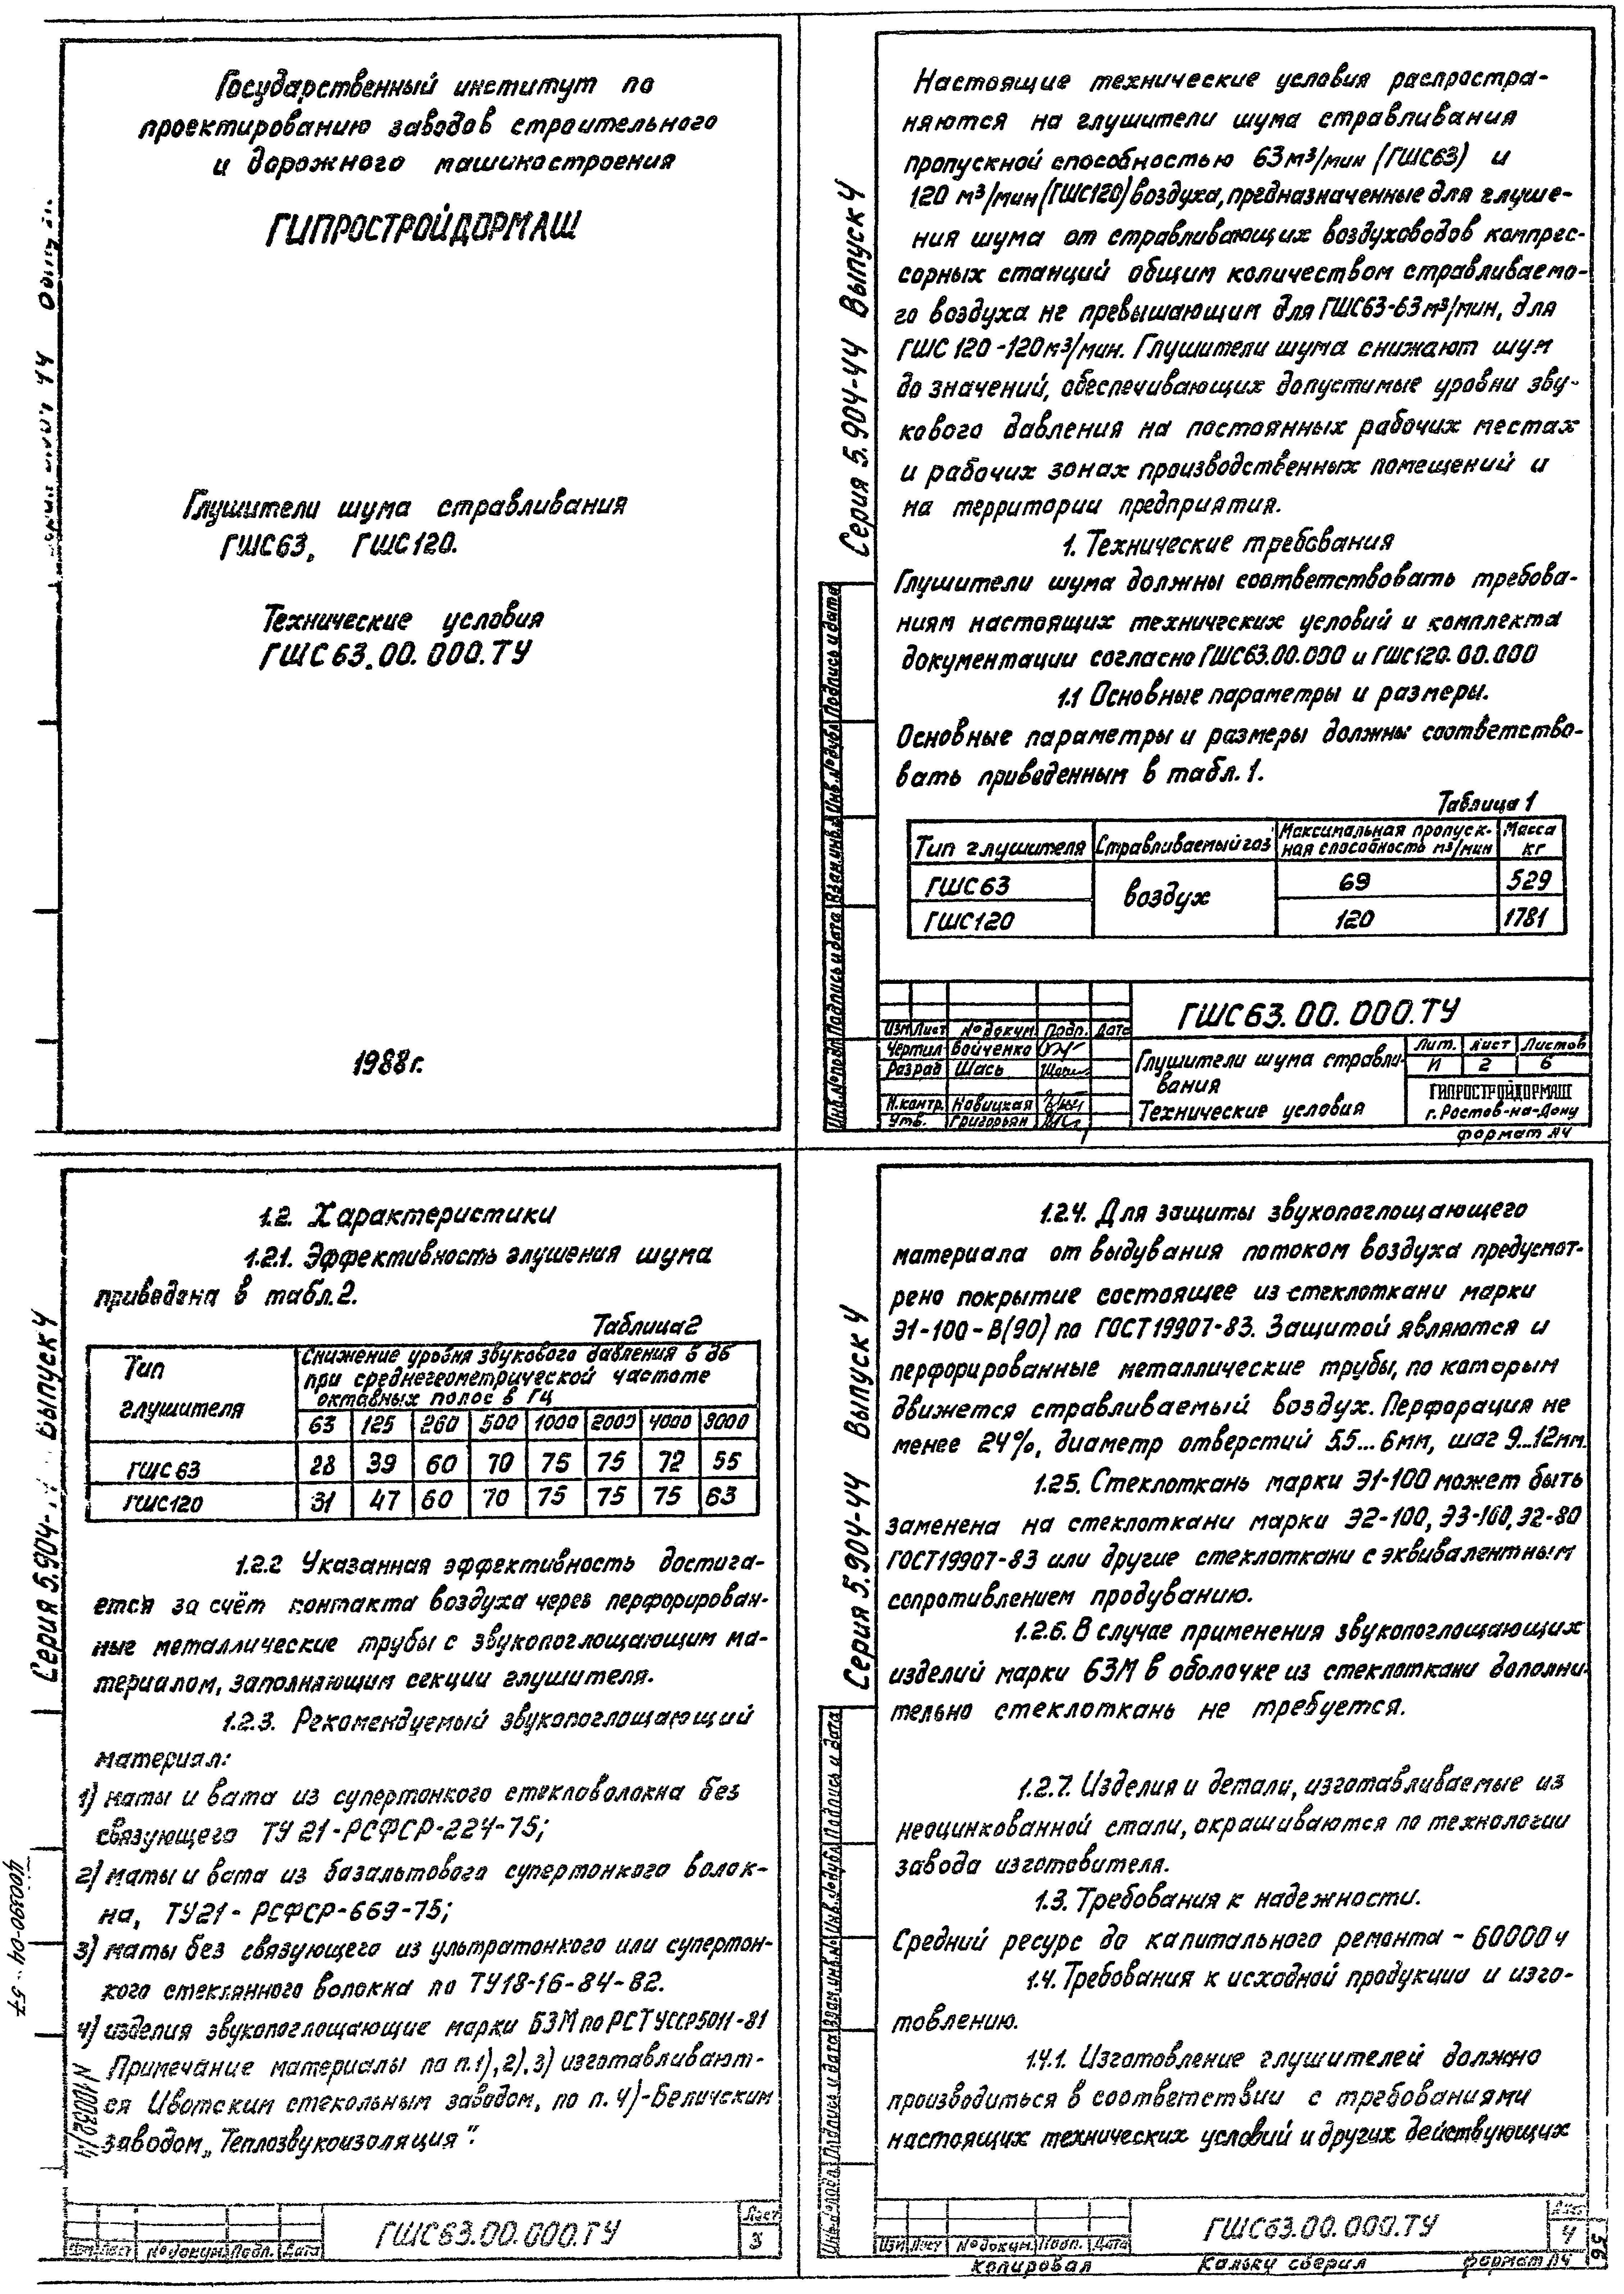 Государственный институт по
проектированию заводов строительного
и дорожного машиностроения
ГИПРОСТРОЙДОРМАШ
Глушители шума стравливания
ГШС63, ГШС120.
Технические условия
ГШС63.00.000.ТУ
1988г.
Серия 5.904-44 Выпуск 4
Настоящие технические условия распростра-
няются на глушители шума стравливания
пропускной способностью 63м³/мин (ГШС63) и
120 м³/мин(ГШС120)воздуха, предназначенные для глуше-
ния шума от стравливающих воздуховодов компрес-
сорных станций общим количеством стравливаемо-
го воздуха не превышающим для ГШС63-63м³/мин, для
ГШС 120-120м³/мин. Глушители шума снижают шум
до значений, обеспечивающих допустимые уровни зву-
кового давления на постоянных рабочих местах
и рабочих зонах производственных помещений и
на территории предприятия.
1. Технические требования
Глушители шума должны соответствовать требова-
ниям настоящих технических условий и комплекта
документации согласно ГШС63.00.000 и ГШС120.00.000
1.1 Основные параметры и размеры.
Основные параметры и размеры должны соответство-
вать приведенным в табл.1.
Таблица 1
Тип глушителя Стравливаемый газ Максимальная пропуск- Масса
ная способность м³/мин кг
ГШС63 воздух 69 529
ГШС120 120 1781
Инв.№подл. Подпись и дата Взам.инв.№ Инв.№дубл. Подпись и дата
ГШС63.00.000.ТУ
Изм Лист №докум Подп. Дата
Чертил Войченко
Разраб Шась
Н.контр. Новицкая
Утв. Григорьян
Глушители шума стравли-
вания
Технические условия
Лит. Лист Листов
И 2 6
ГИПРОСТРОЙДОРМАШ
г. Ростов-на-Дону
формат А4
Серия 5.904- выпуск 4
1.2. Характеристики
1.2.1. Эффективность глушения шума
приведена в табл.2.
Таблица2
Тип
глушителя
Снижение уровня звукового давления в дб
при среднегеометрической частоте
октавных полос в Гц
63 125 260 500 1000 2000 4000 8000
ГШС 63 28 39 60 70 75 75 72 55
ГШС120 31 47 60 70 75 75 75 63
1.2.2 Указанная эффективность достига-
ется за счёт контакта воздуха через перфорирован-
ные металлические трубы с звукопоглощающим ма-
териалом, заполняющим секции глушителя.
1.2.3. Рекомендуемый звукопоглощающий
материал:
1) маты и вата из супертонкого стекловолокна без
связующего ТУ 21-РСФСР-224-75;
2) маты и вата из базальтового супертонкого волок-
на, ТУ21-РСФСР-669-75;
3) маты без связующего из ультратонкого или супертон-
кого стеклянного волокна по ТУ18-16-84-82.
4) изделия звукопоглощающие марки БЗМ по РСТ УССР5011-81
Примечание материалы по п.1),2),3) изготавливают-
ся Ивотским стекольным заводом, по п.4)-Беличским
заводом „Теплозвукоизоляция".
Изм Лист №докум Подп. Дата
ГШС63.00.000.ТУ
Лист
3
Серия 5.904-44 Выпуск 4
1.2.4. Для защиты звукопоглощающего
материала от выдувания потоком воздуха предусмот-
рено покрытие состоящее из стеклоткани марки
Э1-100-В(90) по ГОСТ19907-83. Защитой являются и
перфорированные металлические трубы, по которым
движется стравливаемый воздух. Перфорация не
менее 24%, диаметр отверстий 5,5...6мм, шаг 9...12мм.
1.2.5. Стеклоткань марки Э1-100 может быть
заменена на стеклоткани марки Э2-100, Э3-100, Э2-80
ГОСТ19907-83 или другие стеклоткани с эквивалентным
сопротивлением продуванию.
1.2.6. В случае применения звукопоглощающих
изделий марки БЗМ в оболочке из стеклоткани дополни-
тельно стеклоткань не требуется.
1.2.7. Изделия и детали, изготавливаемые из
неоцинкованной стали, окрашиваются по технологии
завода изготовителя.
1.3. Требования к надежности.
Средний ресурс до капитального ремонта - 60000ч
1.4. Требования к исходной продукции и изго-
товлению.
1.4.1. Изготовление глушителей должно
производиться в соответствии с требованиями
настоящих технических условий и других действующих
Инв.№подл. Подпись и дата Взам.инв.№ Инв.№дубл. Подпись и дата
Изм Лист №докум. Подп. Дата
ГШС63.00.000.ТУ
Лист
4
копировал Кальку сверил формат А4
56